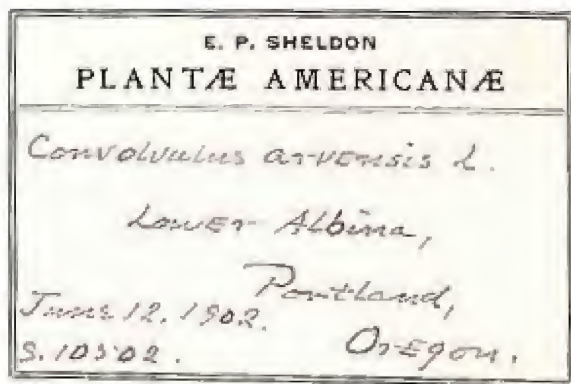 E. P. SHELDON
PLANTÆ AMERICANÆ
Convolvulus arvensis L.
Lower Albina,
Portland,
June 12. 1902.
Oregon.
S. 10502.